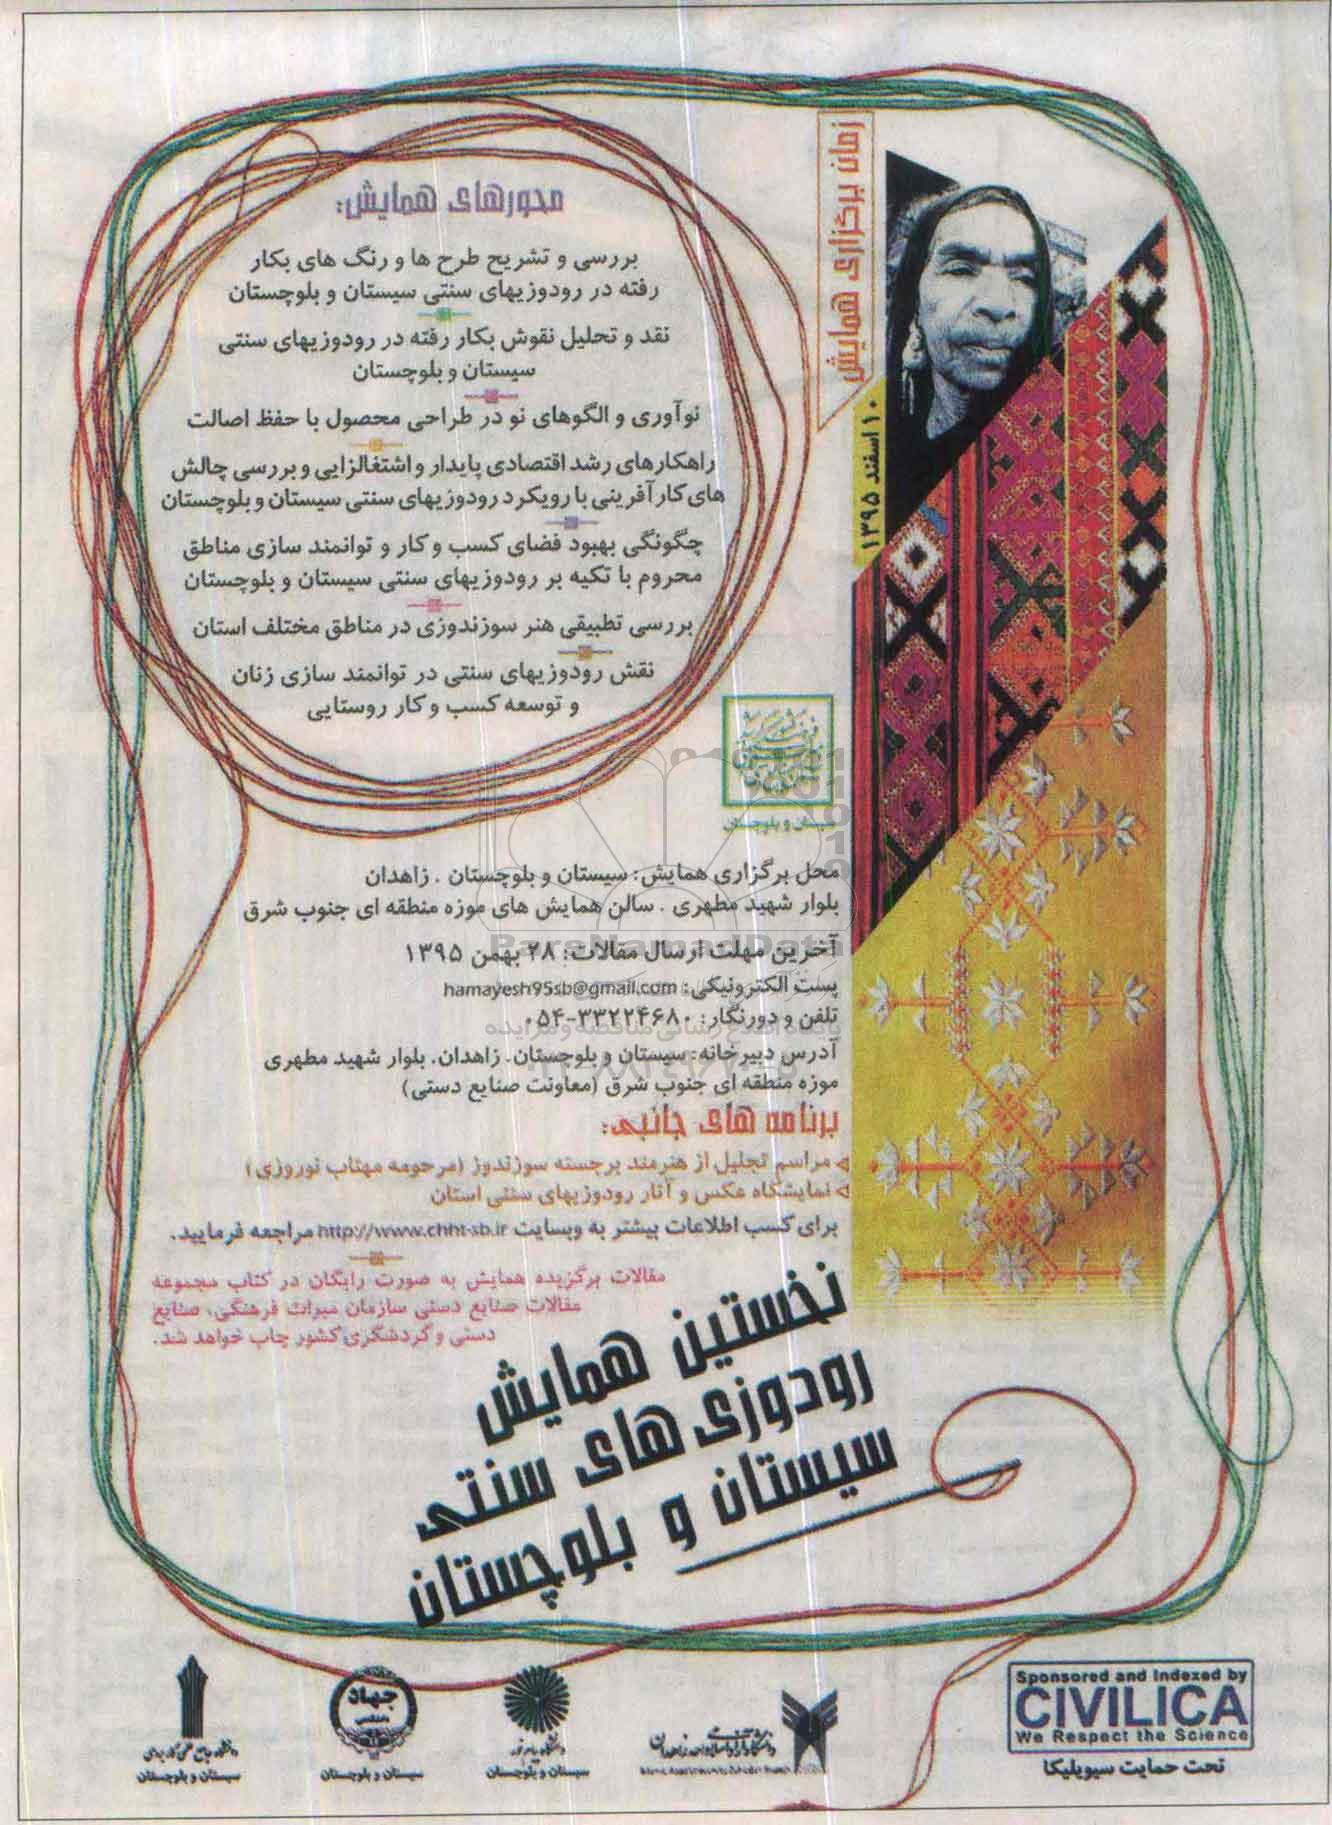 زمان برگزاری همایش
۱۰ اسفند ۱۳۹۵
محورهای همایش:
بررسی و تشریح طرح ها و رنگ های بکار
رفته در رودوزیهای سنتی سیستان و بلوچستان
نقد و تحلیل نقوش بکار رفته در رودوزیهای سنتی
سیستان و بلوچستان
نوآوری و الگوهای نو در طراحی محصول با حفظ اصالت
راهکارهای رشد اقتصادی پایدار و اشتغالزایی و بررسی چالش
های کارآفرینی با رویکرد رودوزیهای سنتی سیستان و بلوچستان
چگونگی بهبود فضای کسب و کار و توانمند سازی مناطق
محروم با تکیه بر رودوزیهای سنتی سیستان و بلوچستان
بررسی تطبیقی هنر سوزندوزی در مناطق مختلف استان
نقش رودوزیهای سنتی در توانمند سازی زنان
و توسعه کسب و کار روستایی
سیستان و بلوچستان
محل برگزاری همایش: سیستان و بلوچستان . زاهدان
بلوار شهید مطهری . سالن همایش های موزه منطقه ای جنوب شرق
آخرین مهلت ارسال مقالات: ۲۸ بهمن ۱۳۹۵
پست الکترونیکی: hamayesh95sb@gmail.com
تلفن و دورنگار: ۳۳۲۲۴۶۸۰-۰۵۴
آدرس دبیرخانه: سیستان و بلوچستان. زاهدان. بلوار شهید مطهری
موزه منطقه ای جنوب شرق (معاونت صنایع دستی)
برنامه های جانبی:
مراسم تجلیل از هنرمند برجسته سوزندوز (مرحومه مهتاب نوروزی)
نمایشگاه عکس و آثار رودوزیهای سنتی استان
برای کسب اطلاعات بیشتر به وبسایت http://www.chht-sb.ir مراجعه فرمایید.
مقالات برگزیده همایش به صورت رایگان در کتاب مجموعه
مقالات صنایع دستی سازمان میراث فرهنگی، صنایع
دستی و گردشگری کشور چاپ خواهد شد.
نخستین همایش
رودوزی های سنتی
سیستان و بلوچستان
Sponsored and Indexed by
CIVILICA
We Respect the Science
تحت حمایت سیویلیکا
دانشگاه پیام نور
سیستان و بلوچستان
جهاد
دانشگاهی
سیستان و بلوچستان
دانشگاه جامع علمی کاربردی
سیستان و بلوچستان
ParsNamadData